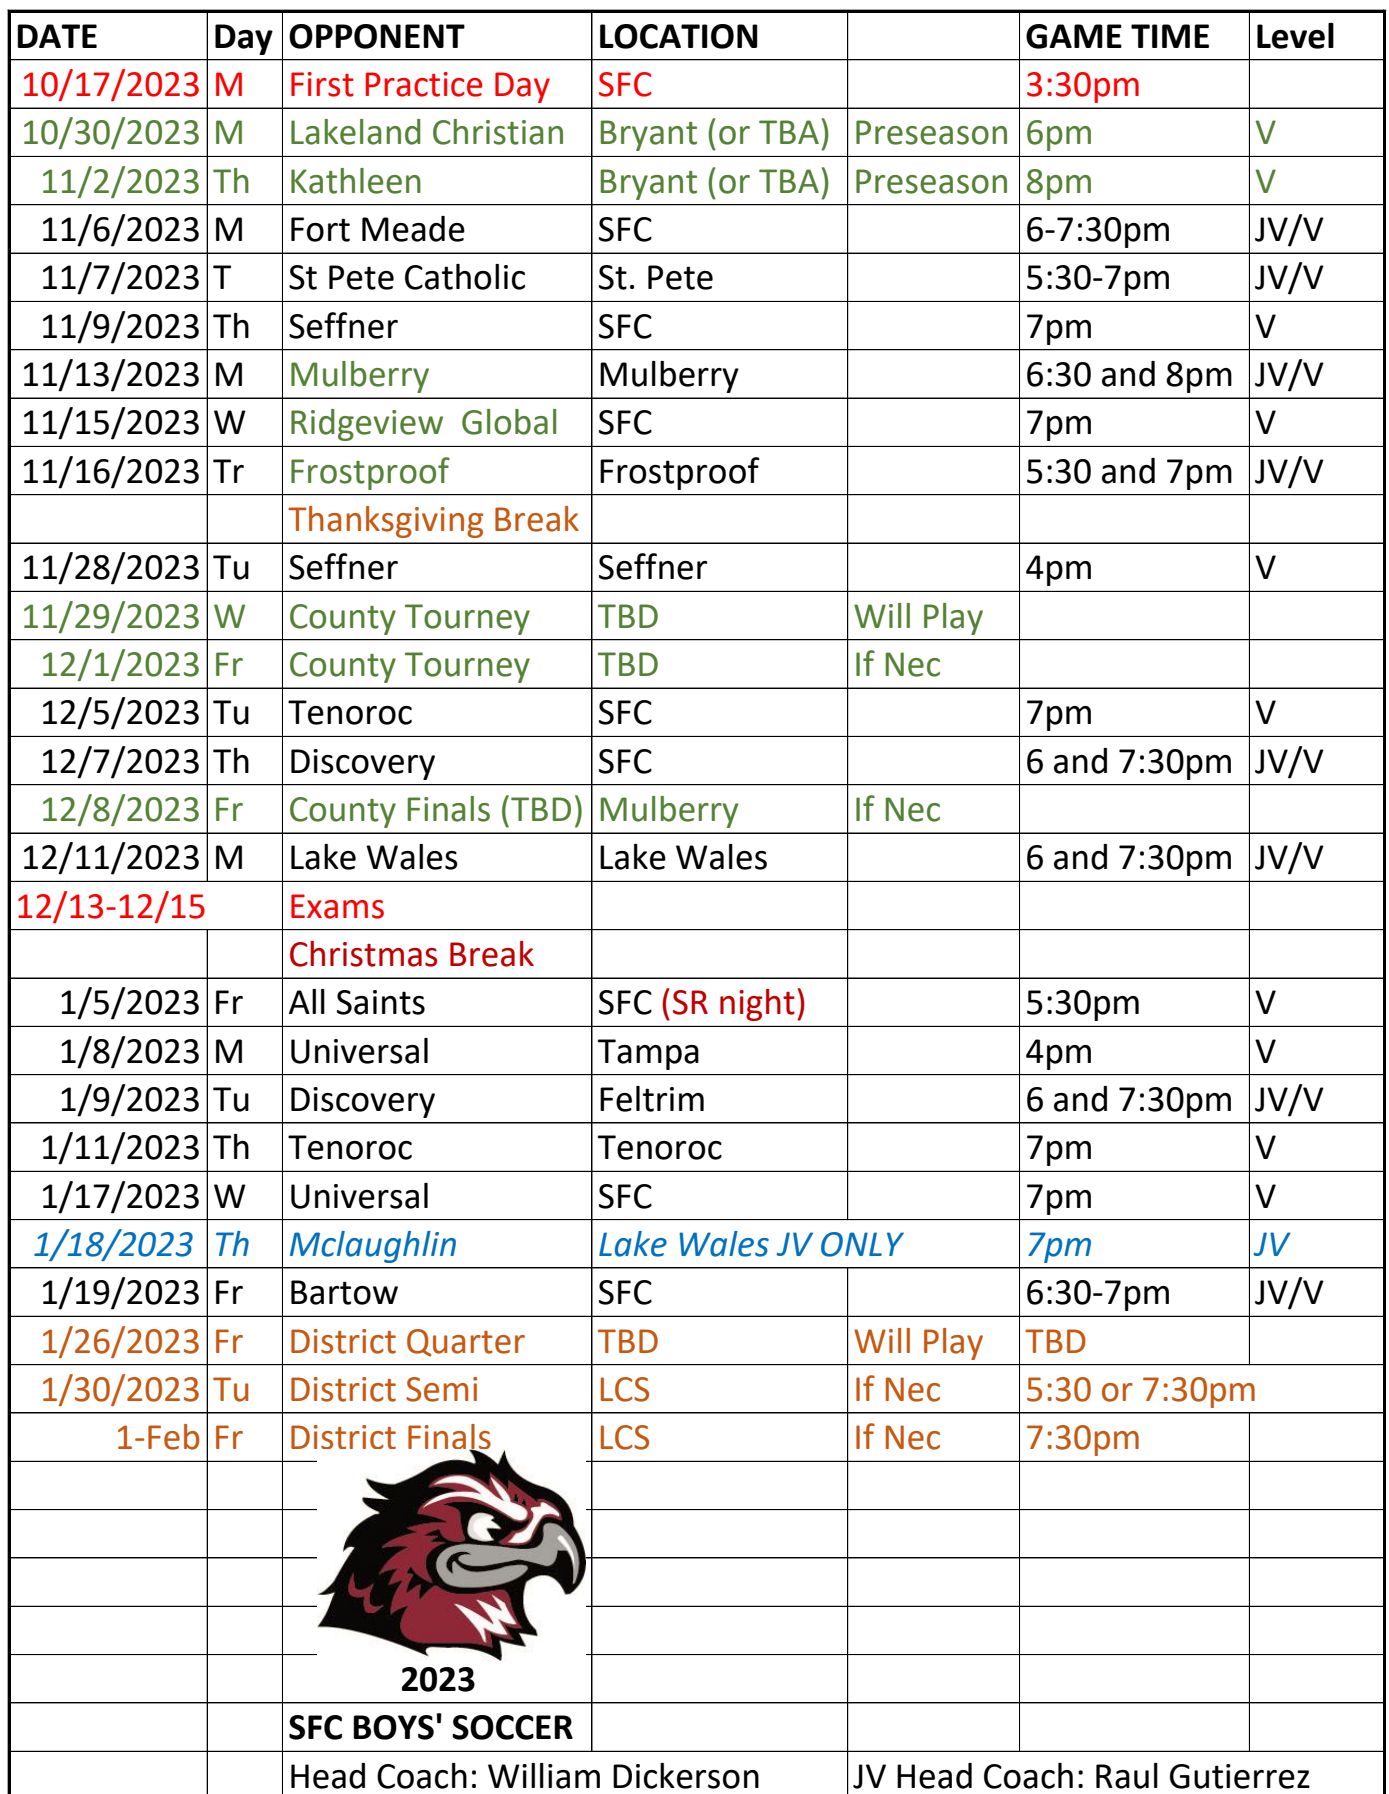 DATE Day OPPONENT LOCATION GAME TIME Level
10/17/2023 M First Practice Day SFC 3:30pm
10/30/2023 M Lakeland Christian Bryant (or TBA) Preseason 6pm V
11/2/2023 Th Kathleen Bryant (or TBA) Preseason 8pm V
11/6/2023 M Fort Meade SFC 6-7:30pm JV/V
11/7/2023 T St Pete Catholic St. Pete 5:30-7pm JV/V
11/9/2023 Th Seffner SFC 7pm V
11/13/2023 M Mulberry Mulberry 6:30 and 8pm JV/V
11/15/2023 W Ridgeview Global SFC 7pm V
11/16/2023 Tr Frostproof Frostproof 5:30 and 7pm JV/V
Thanksgiving Break
11/28/2023 Tu Seffner Seffner 4pm V
11/29/2023 W County Tourney TBD Will Play
12/1/2023 Fr County Tourney TBD If Nec
12/5/2023 Tu Tenoroc SFC 7pm V
12/7/2023 Th Discovery SFC 6 and 7:30pm JV/V
12/8/2023 Fr County Finals (TBD) Mulberry If Nec
12/11/2023 M Lake Wales Lake Wales 6 and 7:30pm JV/V
12/13-12/15 Exams
Christmas Break
1/5/2023 Fr All Saints SFC (SR night) 5:30pm V
1/8/2023 M Universal Tampa 4pm V
1/9/2023 Tu Discovery Feltrim 6 and 7:30pm JV/V
1/11/2023 Th Tenoroc Tenoroc 7pm V
1/17/2023 W Universal SFC 7pm V
1/18/2023 Th Mclaughlin Lake Wales JV ONLY 7pm JV
1/19/2023 Fr Bartow SFC 6:30-7pm JV/V
1/26/2023 Fr District Quarter TBD Will Play TBD
1/30/2023 Tu District Semi LCS If Nec 5:30 or 7:30pm
1-Feb Fr District Finals LCS If Nec 7:30pm
2023
SFC BOYS' SOCCER
Head Coach: William Dickerson JV Head Coach: Raul Gutierrez